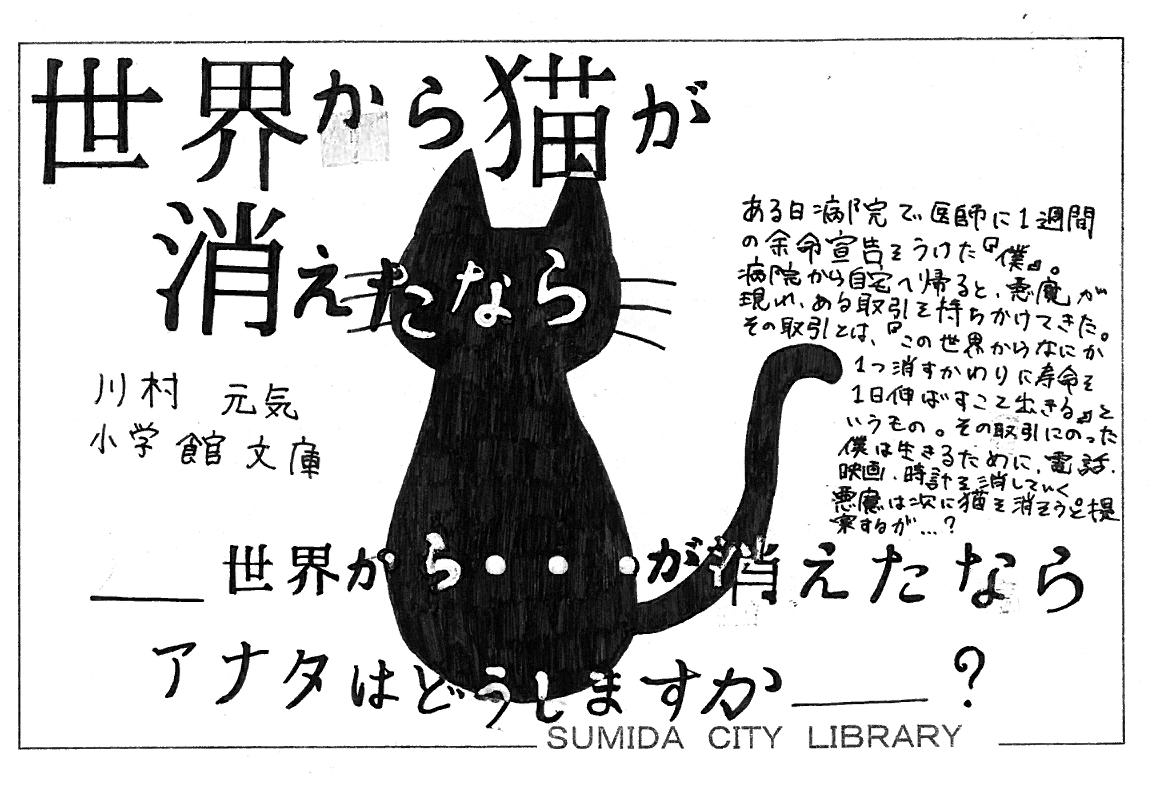 世界から猫が
消えたなら
川村 元気
小学館文庫
ある日病院で医師に1週間
の余命宣告をうけた『僕』。
病院から自宅へ帰ると、悪魔が
現れ、ある取引を持ちかけてきた。
その取引とは、『この世界からなにか
1つ消すかわりに寿命を
1日伸ばすこと出きる』と
いうもの。その取引にのった
僕は生きるために、電話、
映画、時計を消していく。
悪魔は次に猫を消そうと提
案するが…?
__世界から・・・が消えたなら
アナタはどうしますか__?
SUMIDA CITY LIBRARY